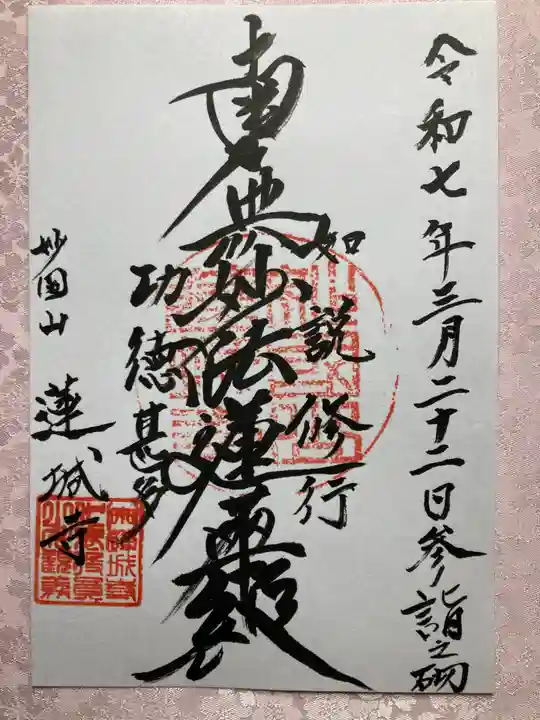 令和七年三月二十二日参詣之砌
如説修行
南無妙法蓮華経
功徳甚多
妙国山 蓮城寺